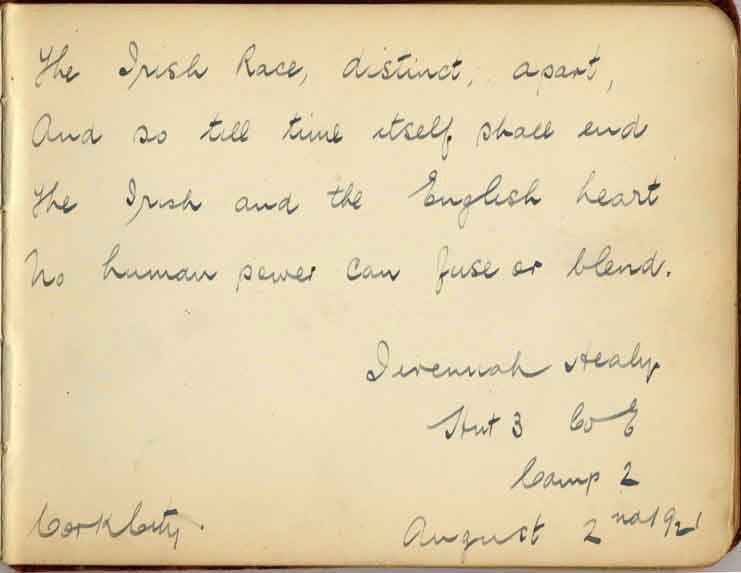 The Irish Race, distinct, apart,
And so till time itself shall end
The Irish and the English heart
No human power can fuse or blend.
Jeremiah Healy
Hut 3 Co E
Camp 2
Cork City.
August 2nd 1921